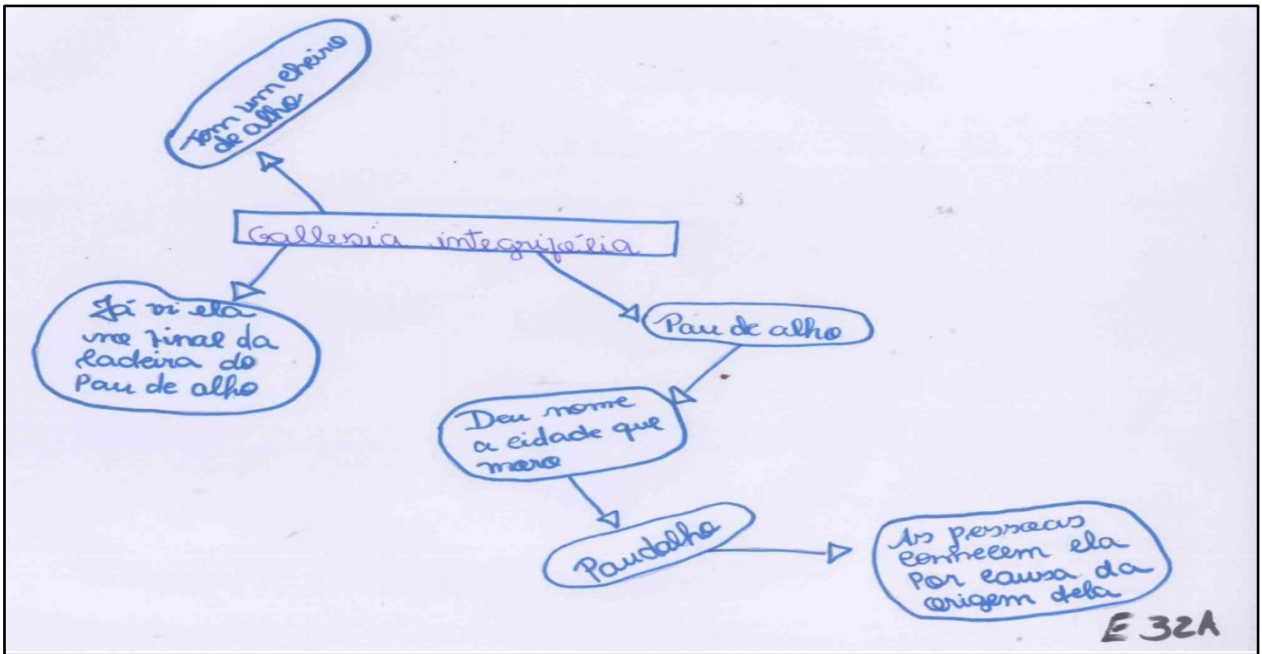 Tem um cheiro
de alho
Gallesia integrifólia
Já vi ela
no final da
ladeira do
Pau de alho
Pau de alho
Deu nome
a cidade que
moro
Paudalho
As pessoas
conhecem ela
Por causa da
origem dela
E 32A